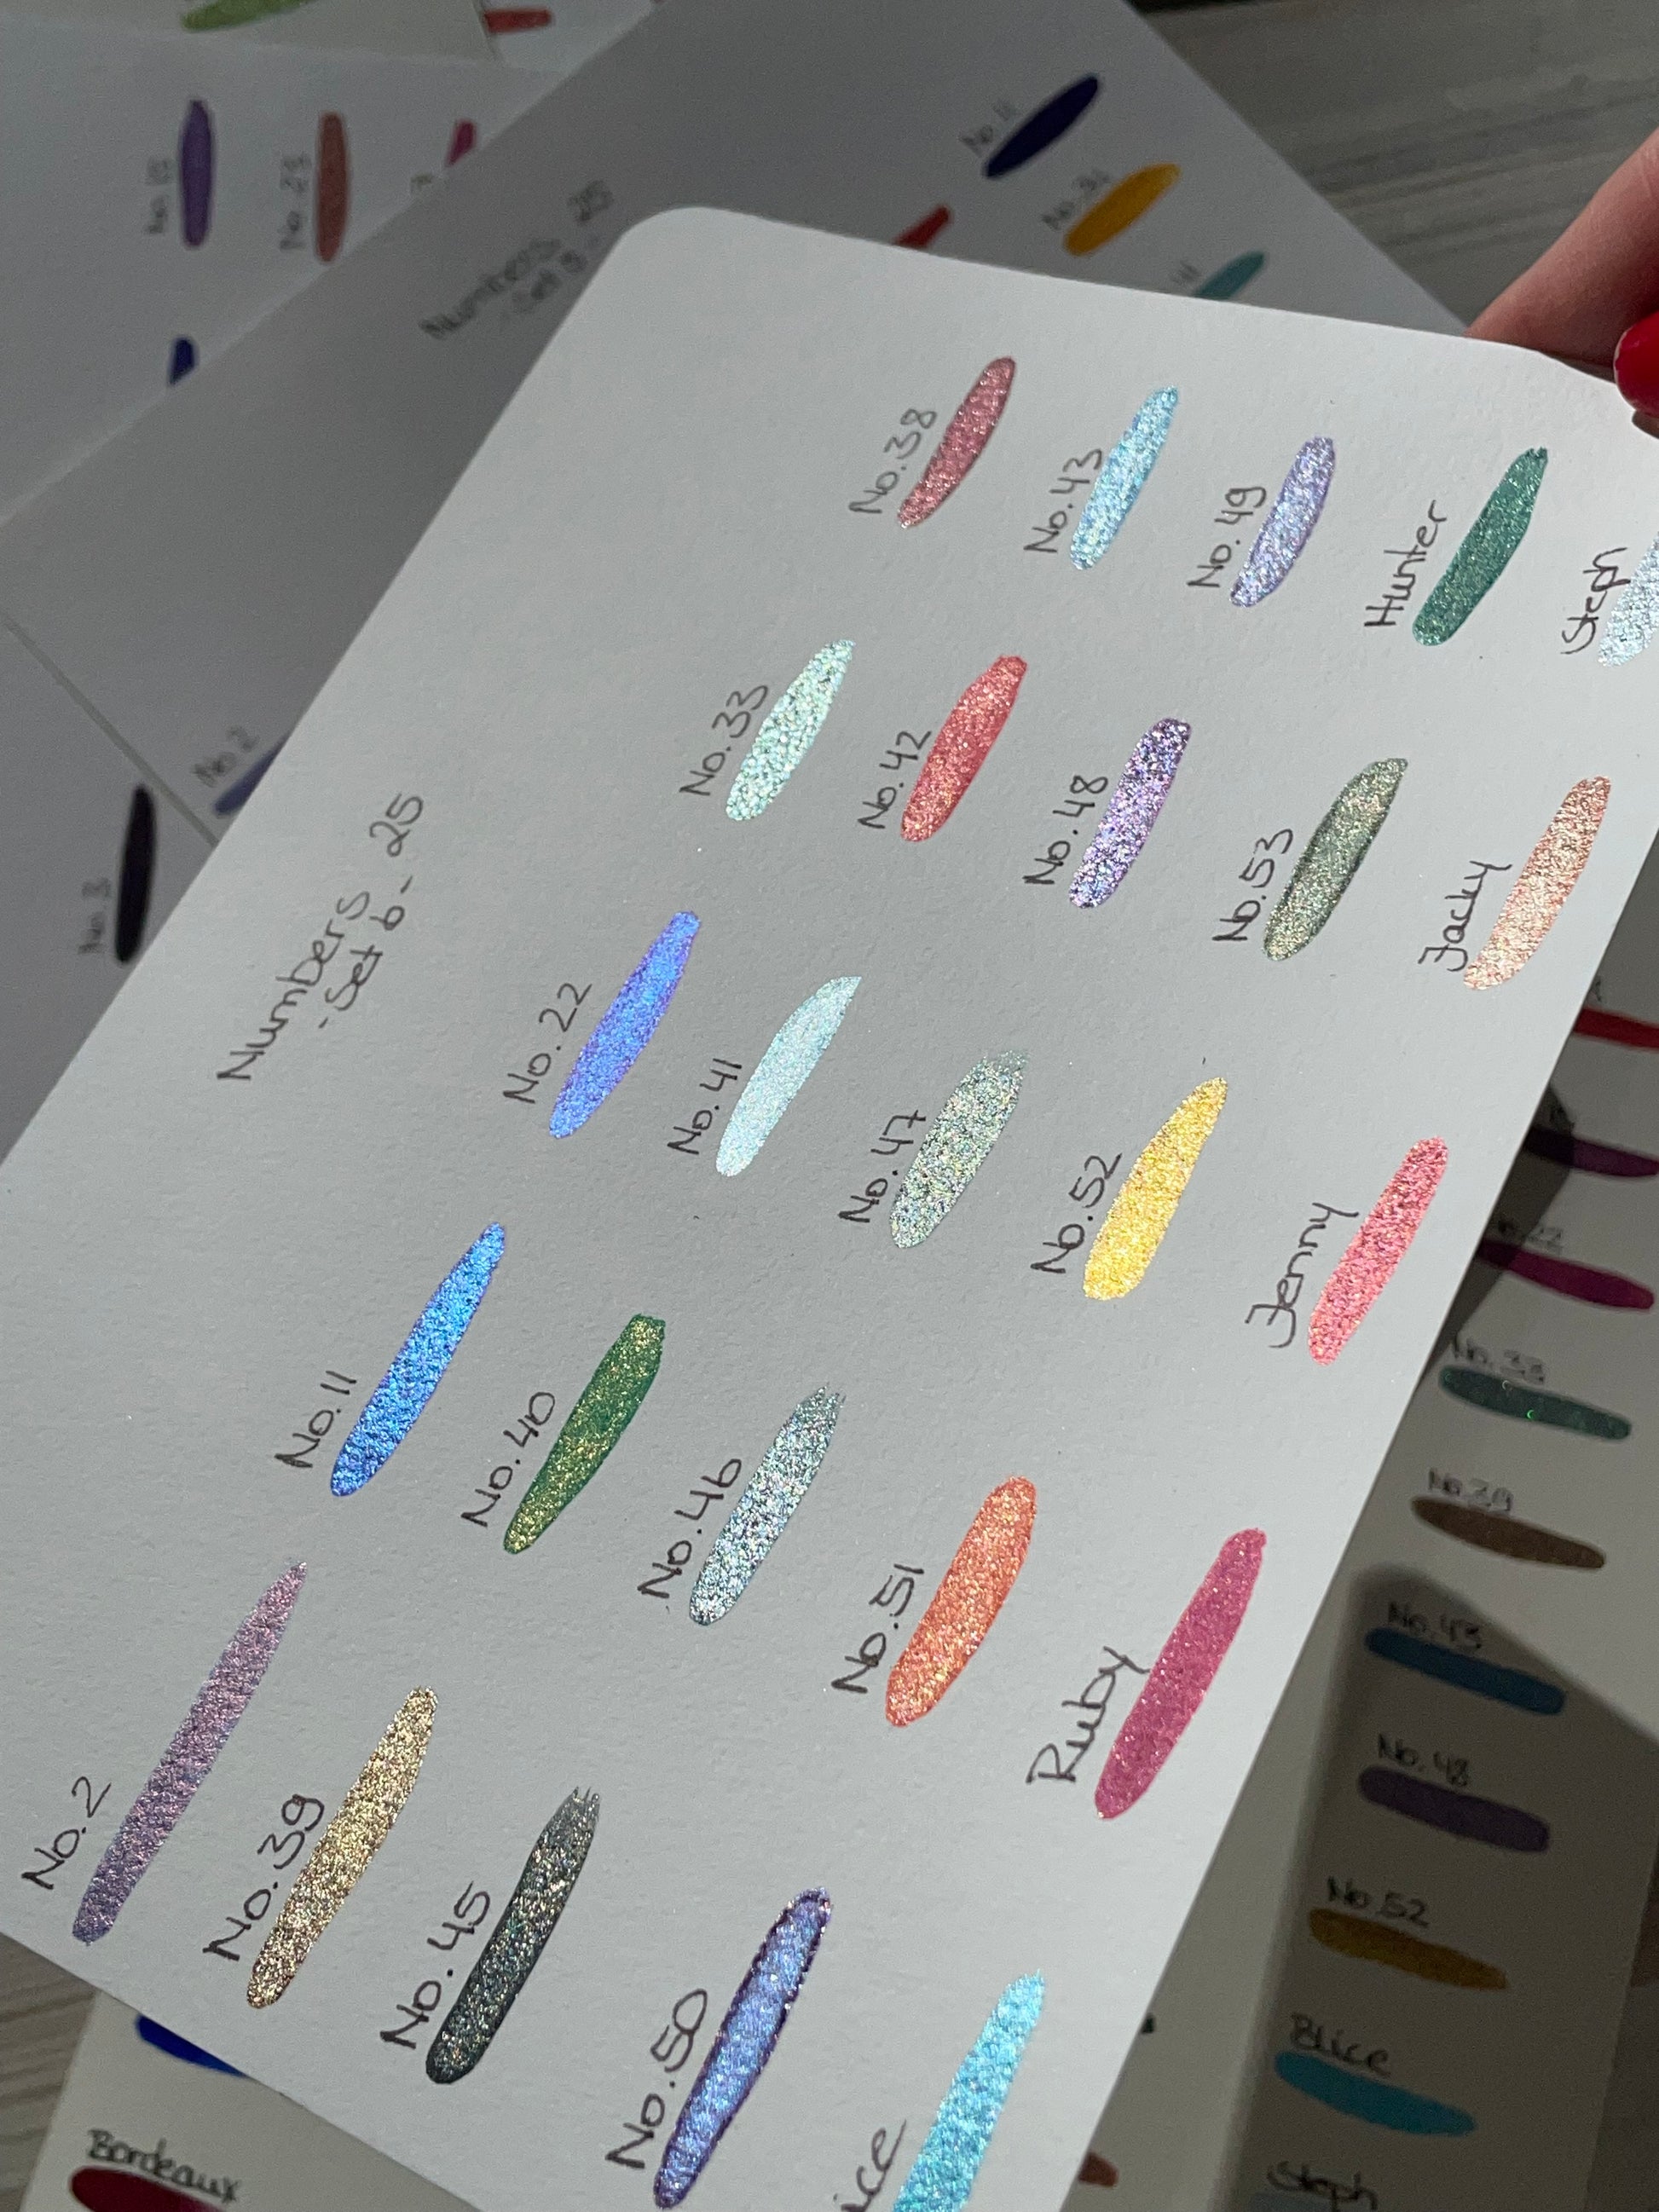 Numbers 25
-Set 6-
No.2
No.11
No.22
No.33
No.38
No.39
No.40
No.41
No.42
No.43
No.45
No.46
No.47
No.48
No.49
No.50
No.51
No.52
No.53
Hunter
ice
Ruby
Jenny
Jacky
Steph
Numbers 25
No.11
No.2
No.3
No.33
No.39
No.43
No.48
No.52
Blice
Steph
Bordeaux